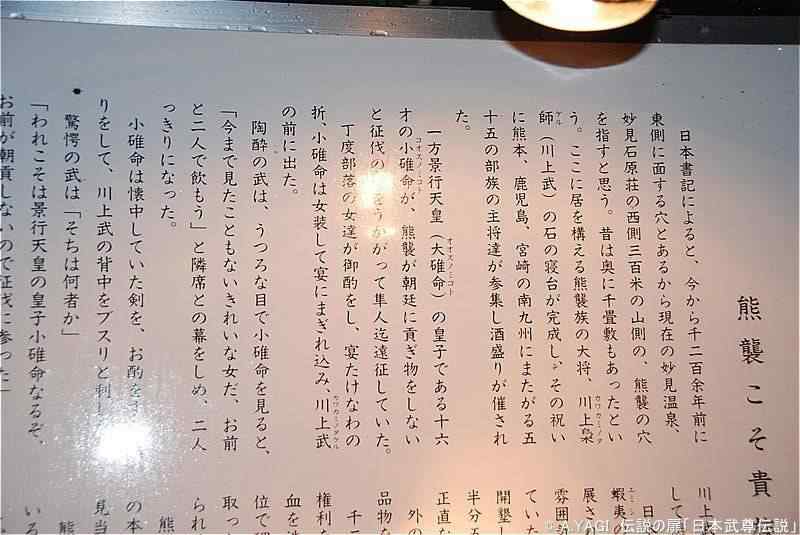 熊襲こそ貴
日本書記によると、今から千二百余年前に
東側に面する穴とあるから現在の妙見温泉、
妙見石原荘の西側三百米の山側の、熊襲の穴
を指すと思う。昔は奥に千畳敷もあったとい
う。ここに居を構える熊襲族の大将、川上梟
師（川上武）の石の寝台が完成し、その祝い
に熊本、鹿児島、宮崎の南九州にまたがる五
十五の部族の主将達が参集し酒盛りが催され
た。
一方景行天皇（大碓命）の皇子である十六
オの小碓命が、熊襲が朝廷に貢ぎ物をしない
と征伐の をうかがって隼人迄遠征していた。
丁度部落の女達が御酌をし、宴たけなわの
折、小碓命は女装して宴にまぎれ込み、川上武
の前に出た。
陶酔の武は、うつろな目で小碓命を見ると、
「今まで見たこともないきれいな女だ、お前
と二人で飲もう」と隣席との幕をしめ、二人
っきりになった。
小碓命は懐中していた剣を、お酌を
りをして、川上武の背中をブスリと刺し
驚愕の武は「そちは何者か」
「われこそは景行天皇の皇子小碓命なるぞ、
お前が朝貢しないので征伐に参った」
川上
して
日
蝦夷の
展さ
雰囲
ていた
開墾し
半分
正直な
外の
品物を
千
権利を
血を
位で
取っ
られ
熊
の本
見当
熊
いろ
© A.YAGI 伝説の扉「日本武尊伝説」